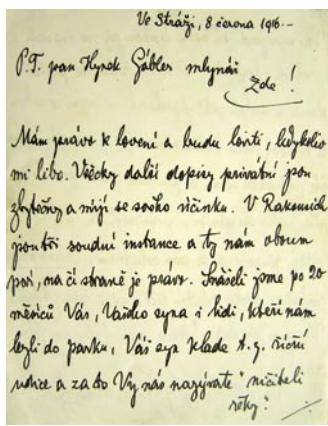 Ve Stráži, 8 června 1916.-
P.T. pan Hynek Gábler mlynář
Zde!
Mám právo k lovení a budu loviti, kdykoliv
mi libo. Všecky další dopisy privátní jsou
zbytečny a míjí se svého účinku. V Rakousích
jsou tři soudní instance a ty nám oboum
poví, na čí straně je právo. Snášeli jsme po 20
měsíců Vás, Vašeho syna i lidi, kteří nám
lezli do parku, Váš syn klade t.g. říční
udice a za to Vy nás nazýváte "ničiteli
řeky".